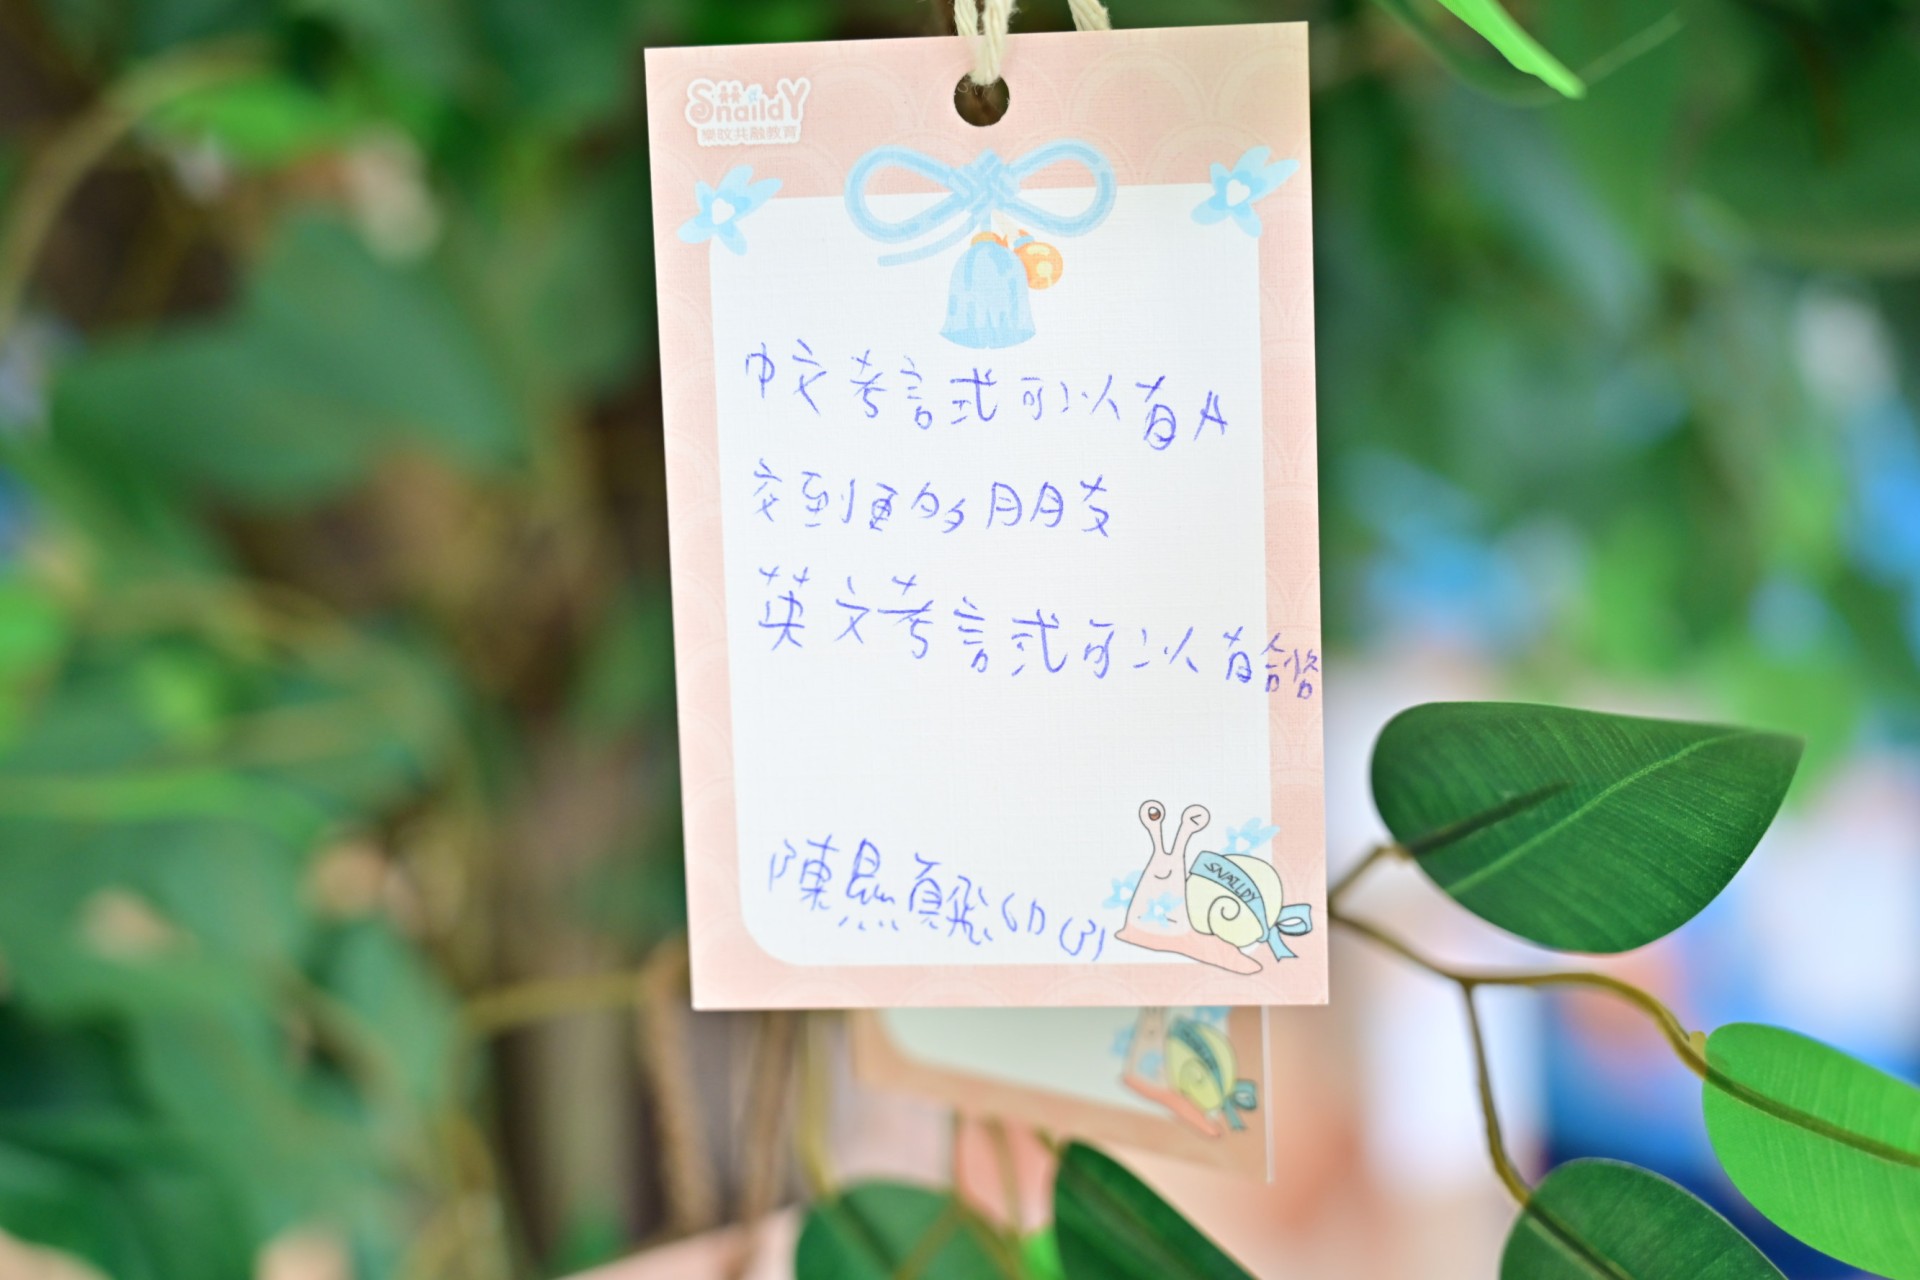 SnaildY
樂旼共融教育
中文考試可以有A
交到更多朋友
英文考試可以有合格
SNAILDY
陳
6D(3)